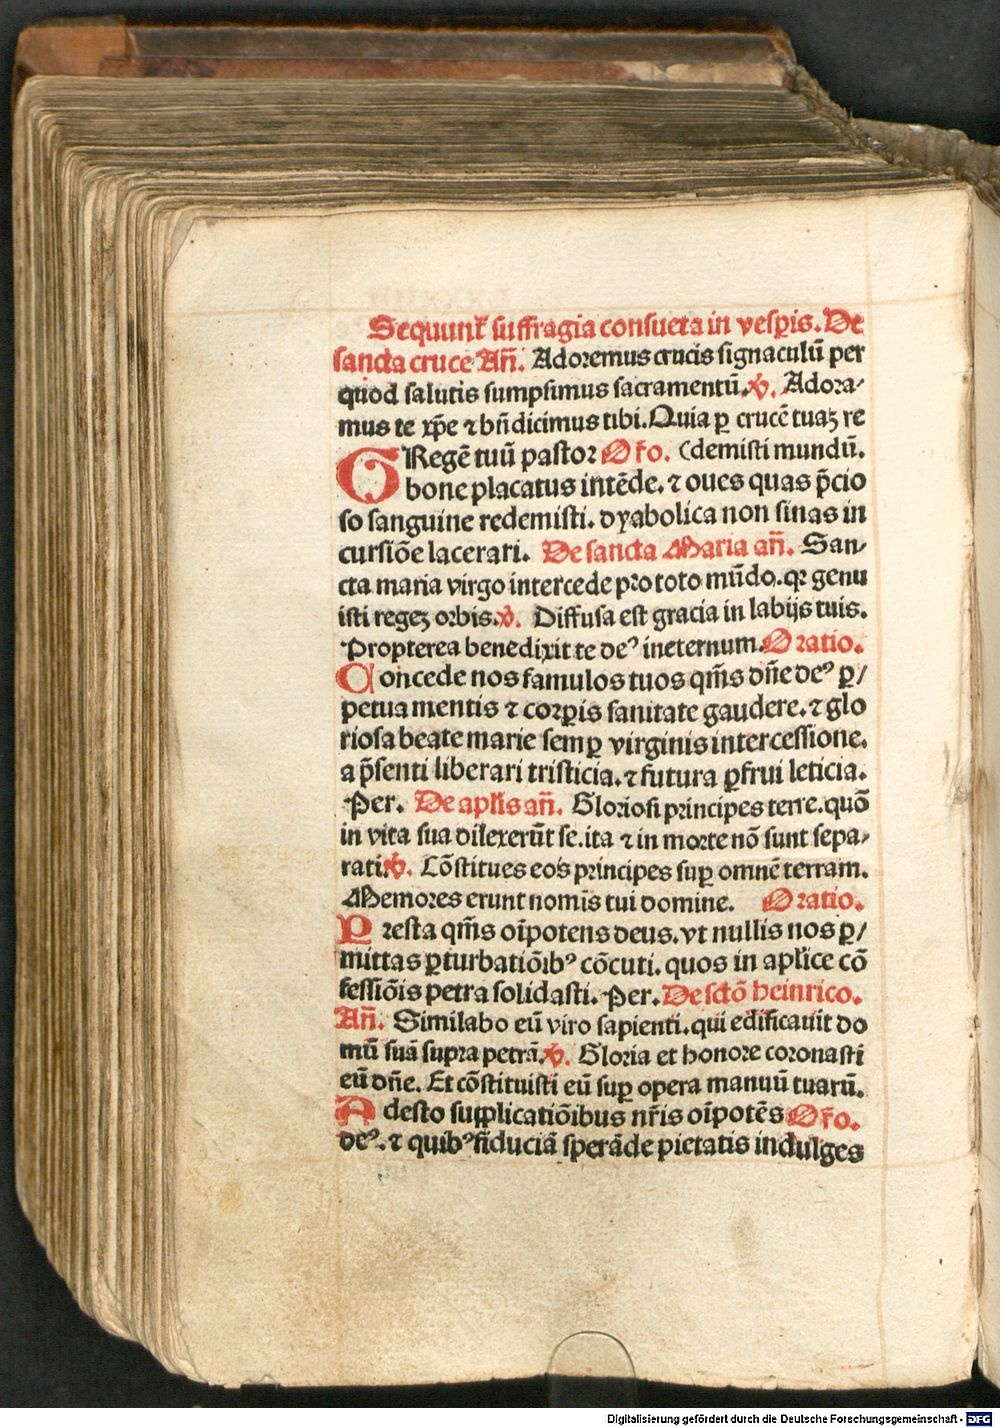 Sequunt᷑ suffragia consueta in vesp̱is. De
sancta cruce Añ. Adoremus crucis signaculū per
quod salutis sumpsimus sacramentū. ℣. Adora⸗
mus te xp̄e ⁊ bn̄dicimus tibi. Quia ꝑ crucē tuaꝫ re
GRegē tuū pastor Or̄o. (demisti mundū.
bone placatus intēde. ⁊ oues quas p̄cio
so sanguine redemisti. dyabolica non sinas in
cursiōe lacerari. De sancta Maria an̄. San⸗
cta maria virgo intercede pro toto mūdo. qꝛ genu
isti regeꝫ orbis. ℣. Diffusa est gracia in labijs tuis.
Propterea benedixit te deꝰ ineternum. Oratio.
Concede nos famulos tuos qm̄s dn̄e deꝰ ꝑ/
petua mentis ⁊ corꝑis sanitate gaudere. ⁊ glo
riosa beate marie semꝑ virginis intercessione.
a p̄senti liberari tristicia. ⁊ futura ꝑfrui leticia.
Per. De apl̄is an̄. Gloriosi principes terre. quō
in vita sua dilexerūt se. ita ⁊ in morte nō sunt sepa⸗
rati. ℣. Cōstitues eos principes suꝑ omnē terram.
Memores erunt nomīs tui domine. Oratio.
Presta qm̄s oīpotens deus. vt nullis nos ꝑ/
mittas ꝑturbatiōibꝰ cōcuti. quos in apl̄ice cō
fessiōis petra solidasti. Per. De sctō heinrico.
An̄. Similabo eū viro sapienti. qui edificauit do
mū suā supra petrā. ℣. Gloria et honore coronasti
eū dn̄e. Et cōstituisti eū suꝑ opera manuū tuarū.
Adesto supplicatiōibus nr̄is oīpotēs Or̄o.
deꝰ. ⁊ quibꝰ fiduciā sperāde pietatis indulges
Digitalisierung gefördert durch die Deutsche Forschungsgemeinschaft - DFG